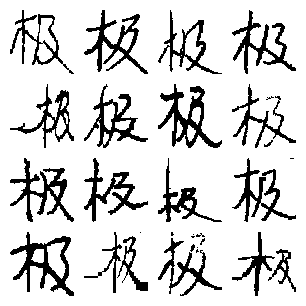 极极极极
极极极极
极极极极
极极极极